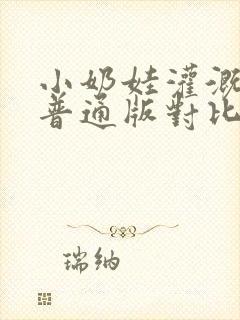 小奶娃灌溉
普通版對比
瑞纳